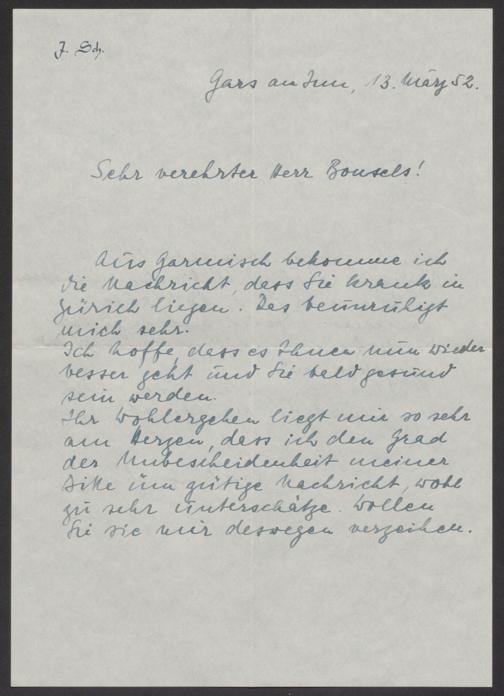 J. Sch.
Gars am Inn, 13. März 52.
Sehr verehrter Herr Bonsels!
Aus Garmisch bekomme ich
die Nachricht, dass Sie krank in
Zürich liegen. Das beunruhigt
mich sehr.
Ich hoffe, dass es Ihnen nun wieder
besser geht und Sie bald gesund
sein werden.
Ihr Wohlergehen liegt mir so sehr
am Herzen, dass ich den Grad
der Unbescheidenheit meiner
Bitte um gütige Nachricht, wohl
zu sehr unterschätze. Wollen
Sie sie mir deswegen verzeihen.